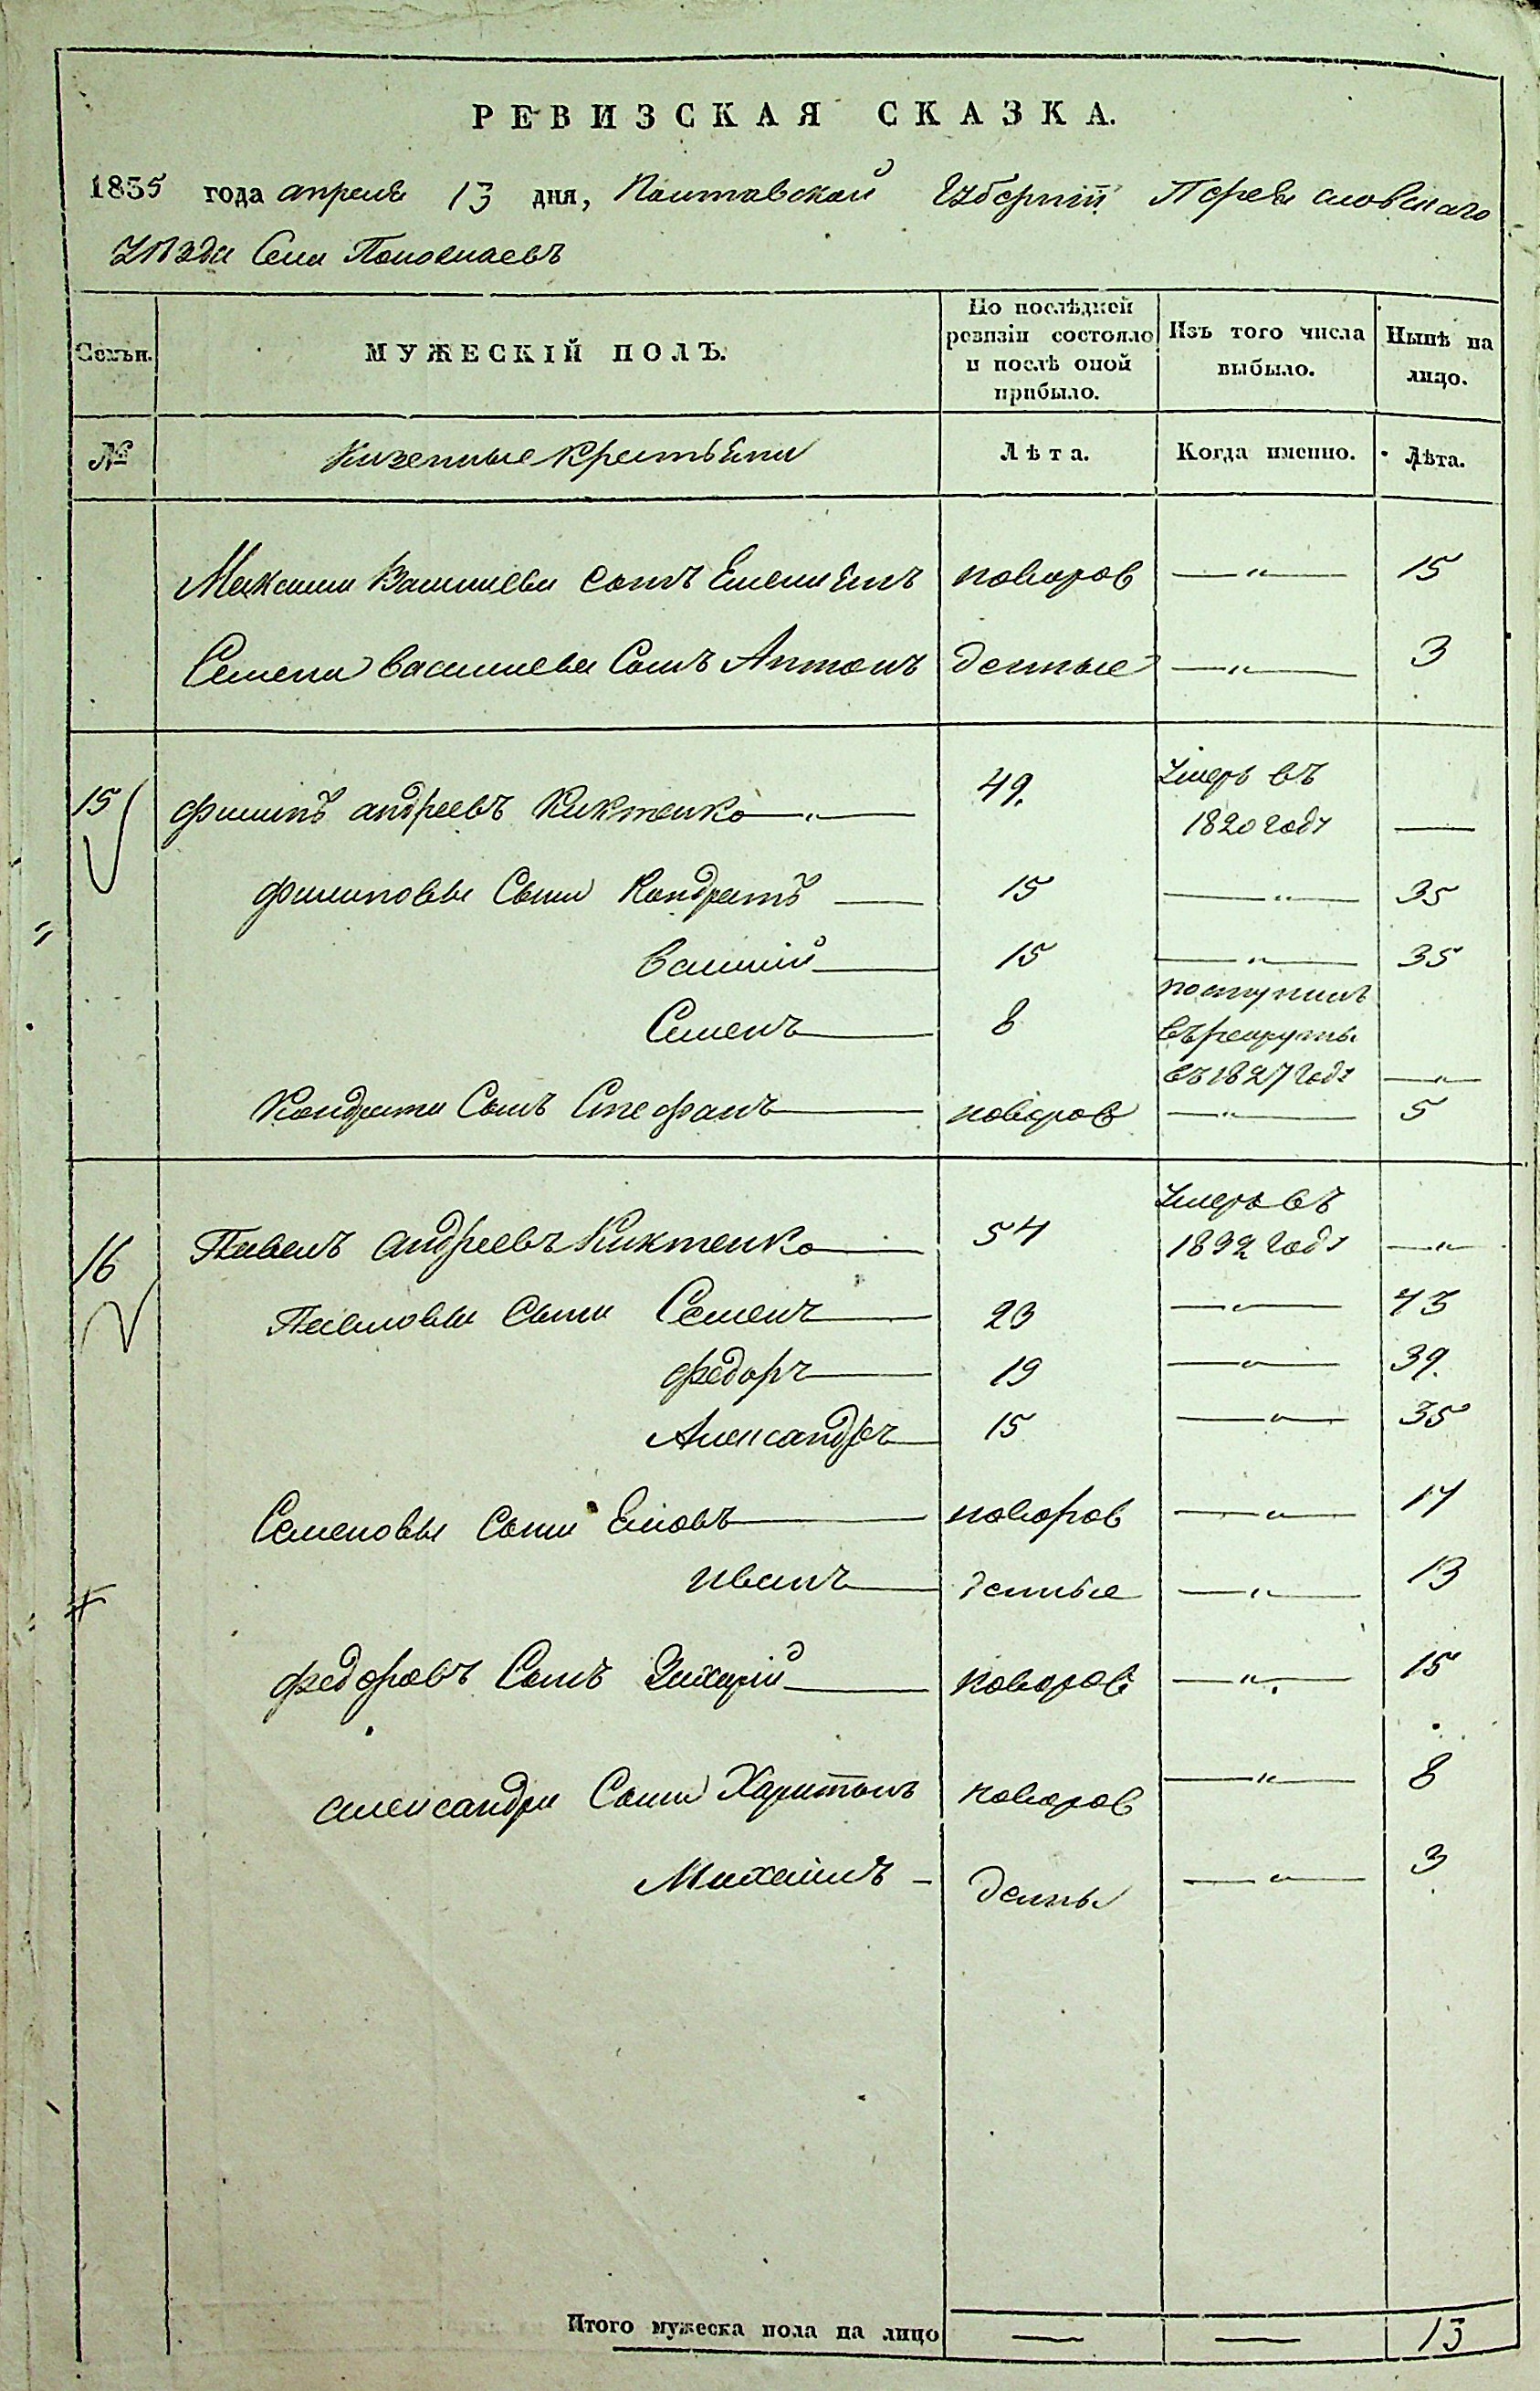 РЕВИЗСКАЯ СКАЗКА.
1835 года апреля 13 дня, Полтавской Губернiи Переяславскаго
уѣзда Села
Семьи. МУЖЕСКІЙ ПОЛЪ. По послѣдней ревизіи состояло и послѣ оной прибыло. Изъ того числа выбыло. Нынѣ на лицо.
№ Казенные крестьяне Лѣта. Когда именно. Лѣта.
Максима Васильева сынъ Емельянъ новорож — „ — 15
Семена Васильева Сынъ Антонъ денные — „ — 3
15 Филипъ андреевъ Киктенко — „ — 49. умеръ въ 1820 году —
Филиповы Сыни Кондратъ — 15 — „ — 35
Василій — 15 — „ — 35
Семенъ — 8 поступилъ въ рекруты въ 1827 году — „ —
Кондрата Сынъ Стефанъ — новорож — „ — 5
16 Павелъ андреевъ Киктенко — 54 умеръ въ 1832 году — „ —
Павловы Сыни Семенъ — 23 — „ — 43
Федоръ — 19 — „ — 39.
Александръ — 15 — „ — 35
Семеновы Сыни — новорож — „ — 17
иванъ — денные — „ — 13
Федоровъ Сынъ Захарій — новорож — „ — 15
александра Сыни Харитонъ новорож — „ — 8
Михаилъ — денны — „ — 3
Итого мужеска пола на лицо — — 13